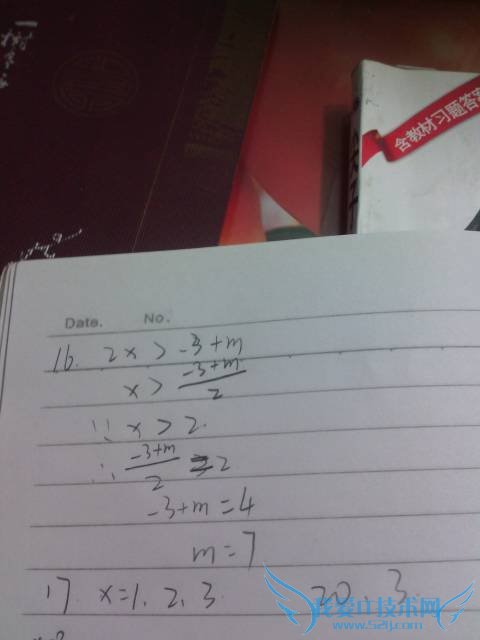 含教材习题答案
Date. No.
16. 2x > -3+m
x > \frac{-3+m}{2}
∵ x > 2.
∴ \frac{-3+m}{2} = 2
-3+m = 4
m = 7
17 x = 1. 2, 3. 20、3.
我爱IT技术网
www.52ij.com